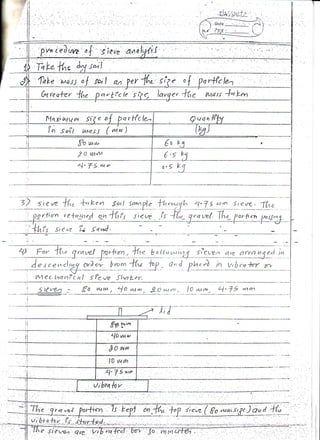 classmate
Date
Page
procedure of sieve analysis
1) Take the dry soil
2) Take mass of soil as per the size of particles
Greater the particle size, larger the mass taken
Maximum size of particles Quantity
In soil mass (mm) (kg)
80 mm 60 kg
20 mm 6.5 kg
4.75 mm 0.5 kg
3) sieve the taken soil sample through 4.75 mm sieve. The
portion retained on this sieve is the gravel The portion passing
this sieve is sand
4) For the gravel portion, the following sieves are arranged in
descending order from the top, and placed in vibrator or
mechanical sieve shaker.
sieves - 80 mm, 40 mm, 20 mm, 10 mm, 4.75 mm
Lid
80 mm
40 mm
20 mm
10 mm
4.75 mm
vibrator
The gravel portion is kept on the top sieve (80 mm size) and the
vibrator is started.
The sieves are vibrated for 10 minutes.